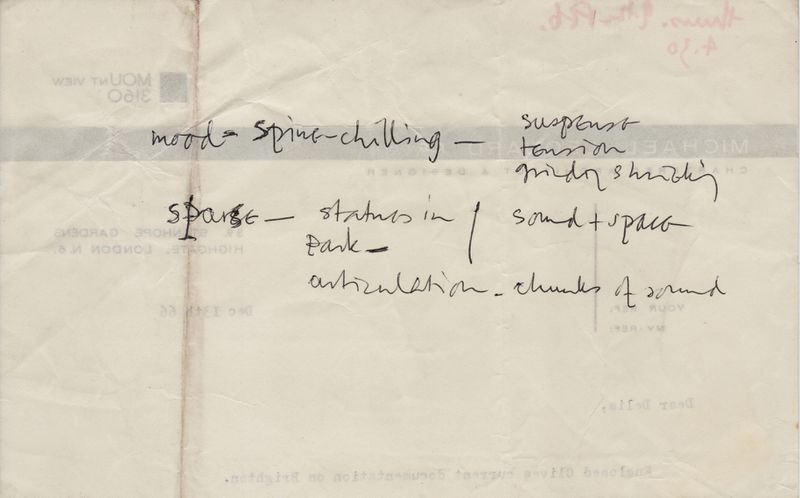 thurs. 9th Feb.
4.30
MOUNT VIEW
3160
mood = spine-chilling — suspense
tension
MICHAEL
& DESIGNER
sparse — statues in / sound + space
park —
STANHOPE GARDENS
HIGHGATE, LONDON N.6.
articulation - chunks of sound
Dec 13th 66
YOUR REF:
MY REF:
Dear Delia,
Enclosed Clives current documentation on Brighton.